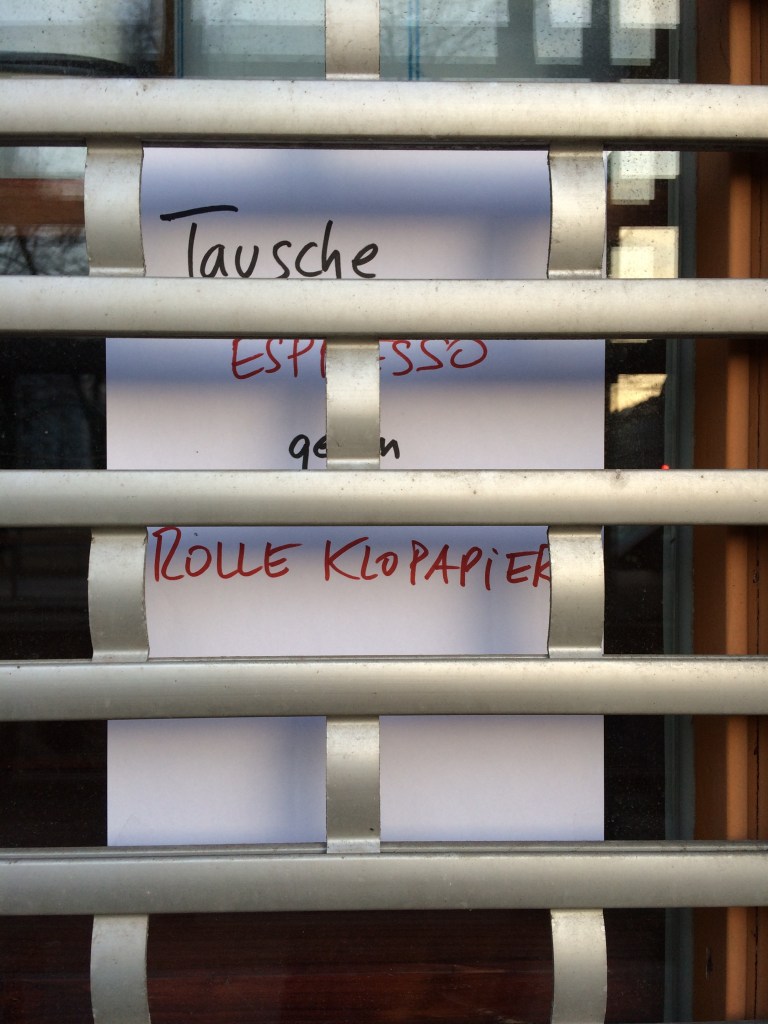 Tausche
ESPRESSO
gegen
ROLLE KLOPAPIER